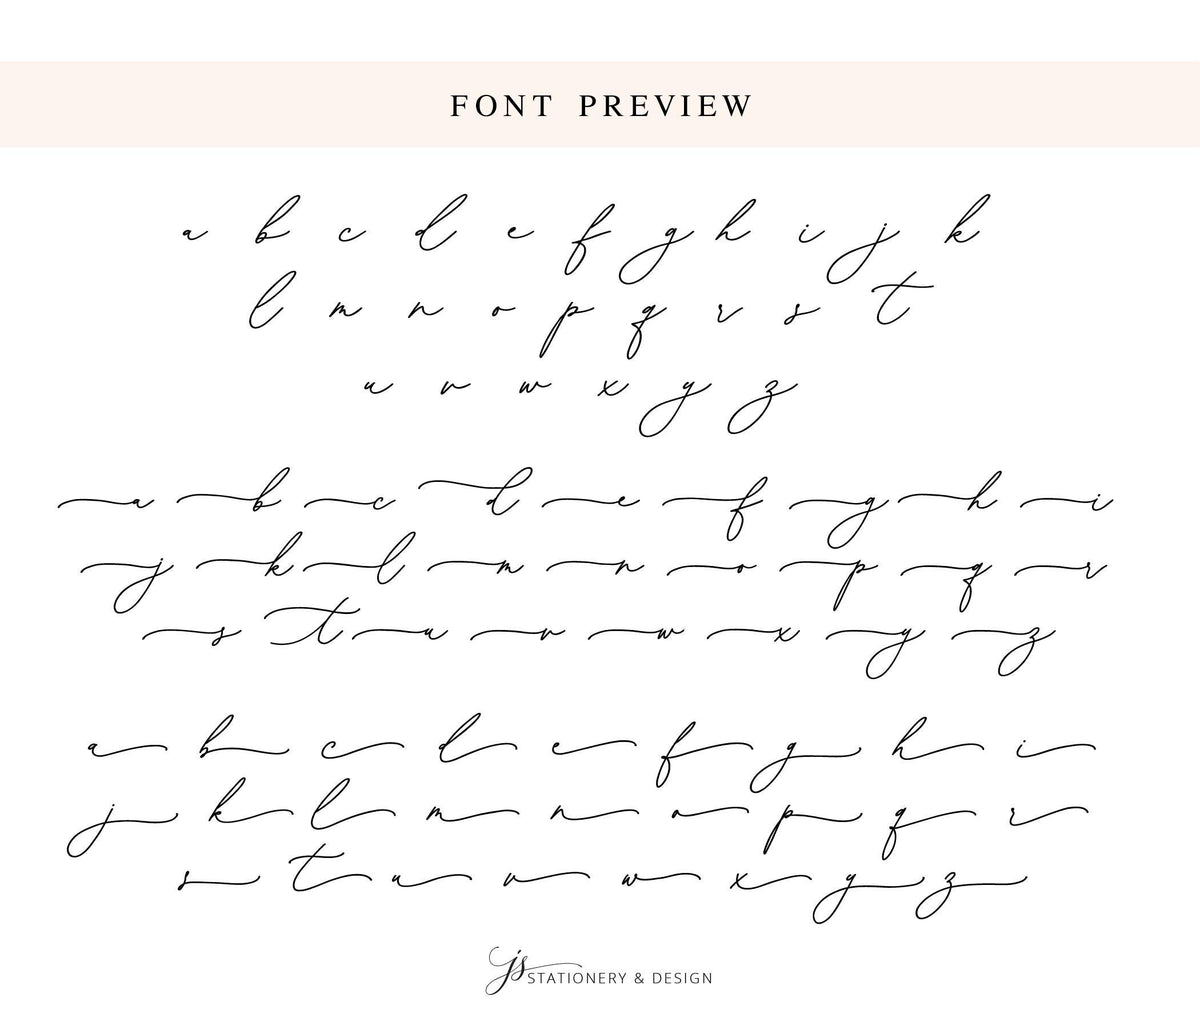 FONT PREVIEW
a b c d e f g h i j k
l m n o p q r s t
u v w x y z
a b c d e f g h i
j k l m n o p q r
s t u v w x y z
a b c d e f g h i
j k l m n o p q r
s t u v w x y z
js STATIONERY & DESIGN